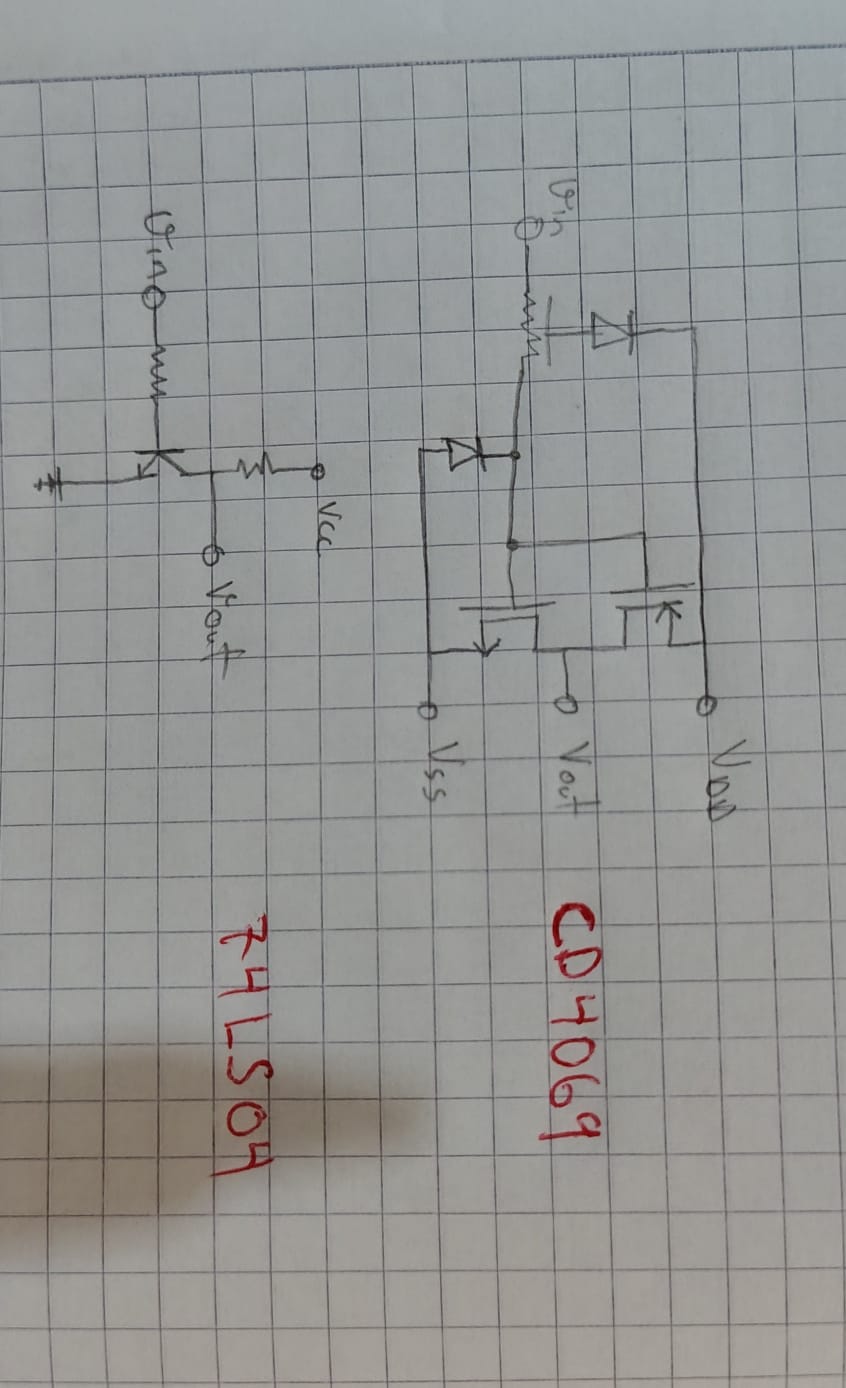 VDD
Vin
Vout
CD4069
Vss
Vcc
Vout
74LS04
Vin